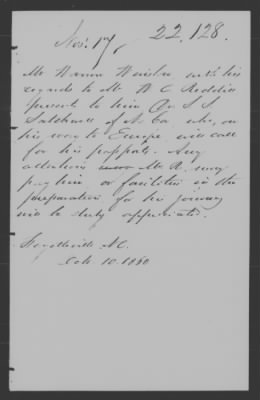 Nov. 17, 22.128.
Mr Warren Winslow with his
regards to Mr. W C Reddin
presents to him Dr S. S.
Satchwell of N. Ca who, on
his way to Europe will call
for his passport. Any
attention Mr R. may
pay him, or facilities in the
preparation for his journey
will be duly appreciated.
Fayetteville N.C.
Oct. 10. 1860